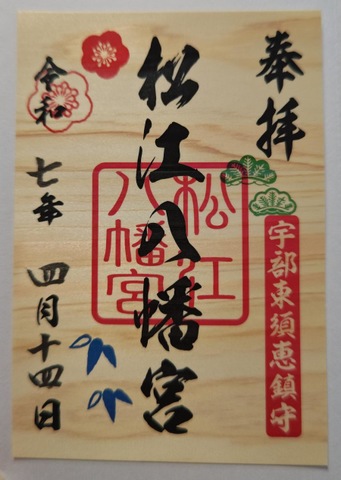 奉拝
宇部東須恵鎮守
松江八幡宮
松江
八幡宮
令和七年四月十四日